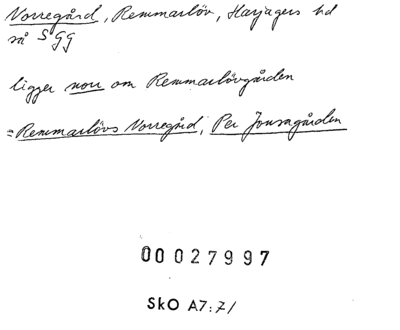 Norregård, Remmarlöv, Harjagers hd
så SGG
ligger norr om Remmarlövgården
= Remmarlövs Norregård, Per Jonsagården
00027997
SkO A7:7/